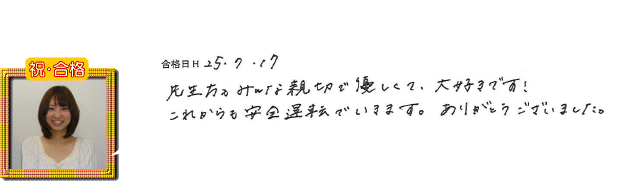 祝・合格
合格日H 25.7.17
先生方もみんな親切で優しくて、大好きです!
これからも安全運転でいきます。ありがとうございました。